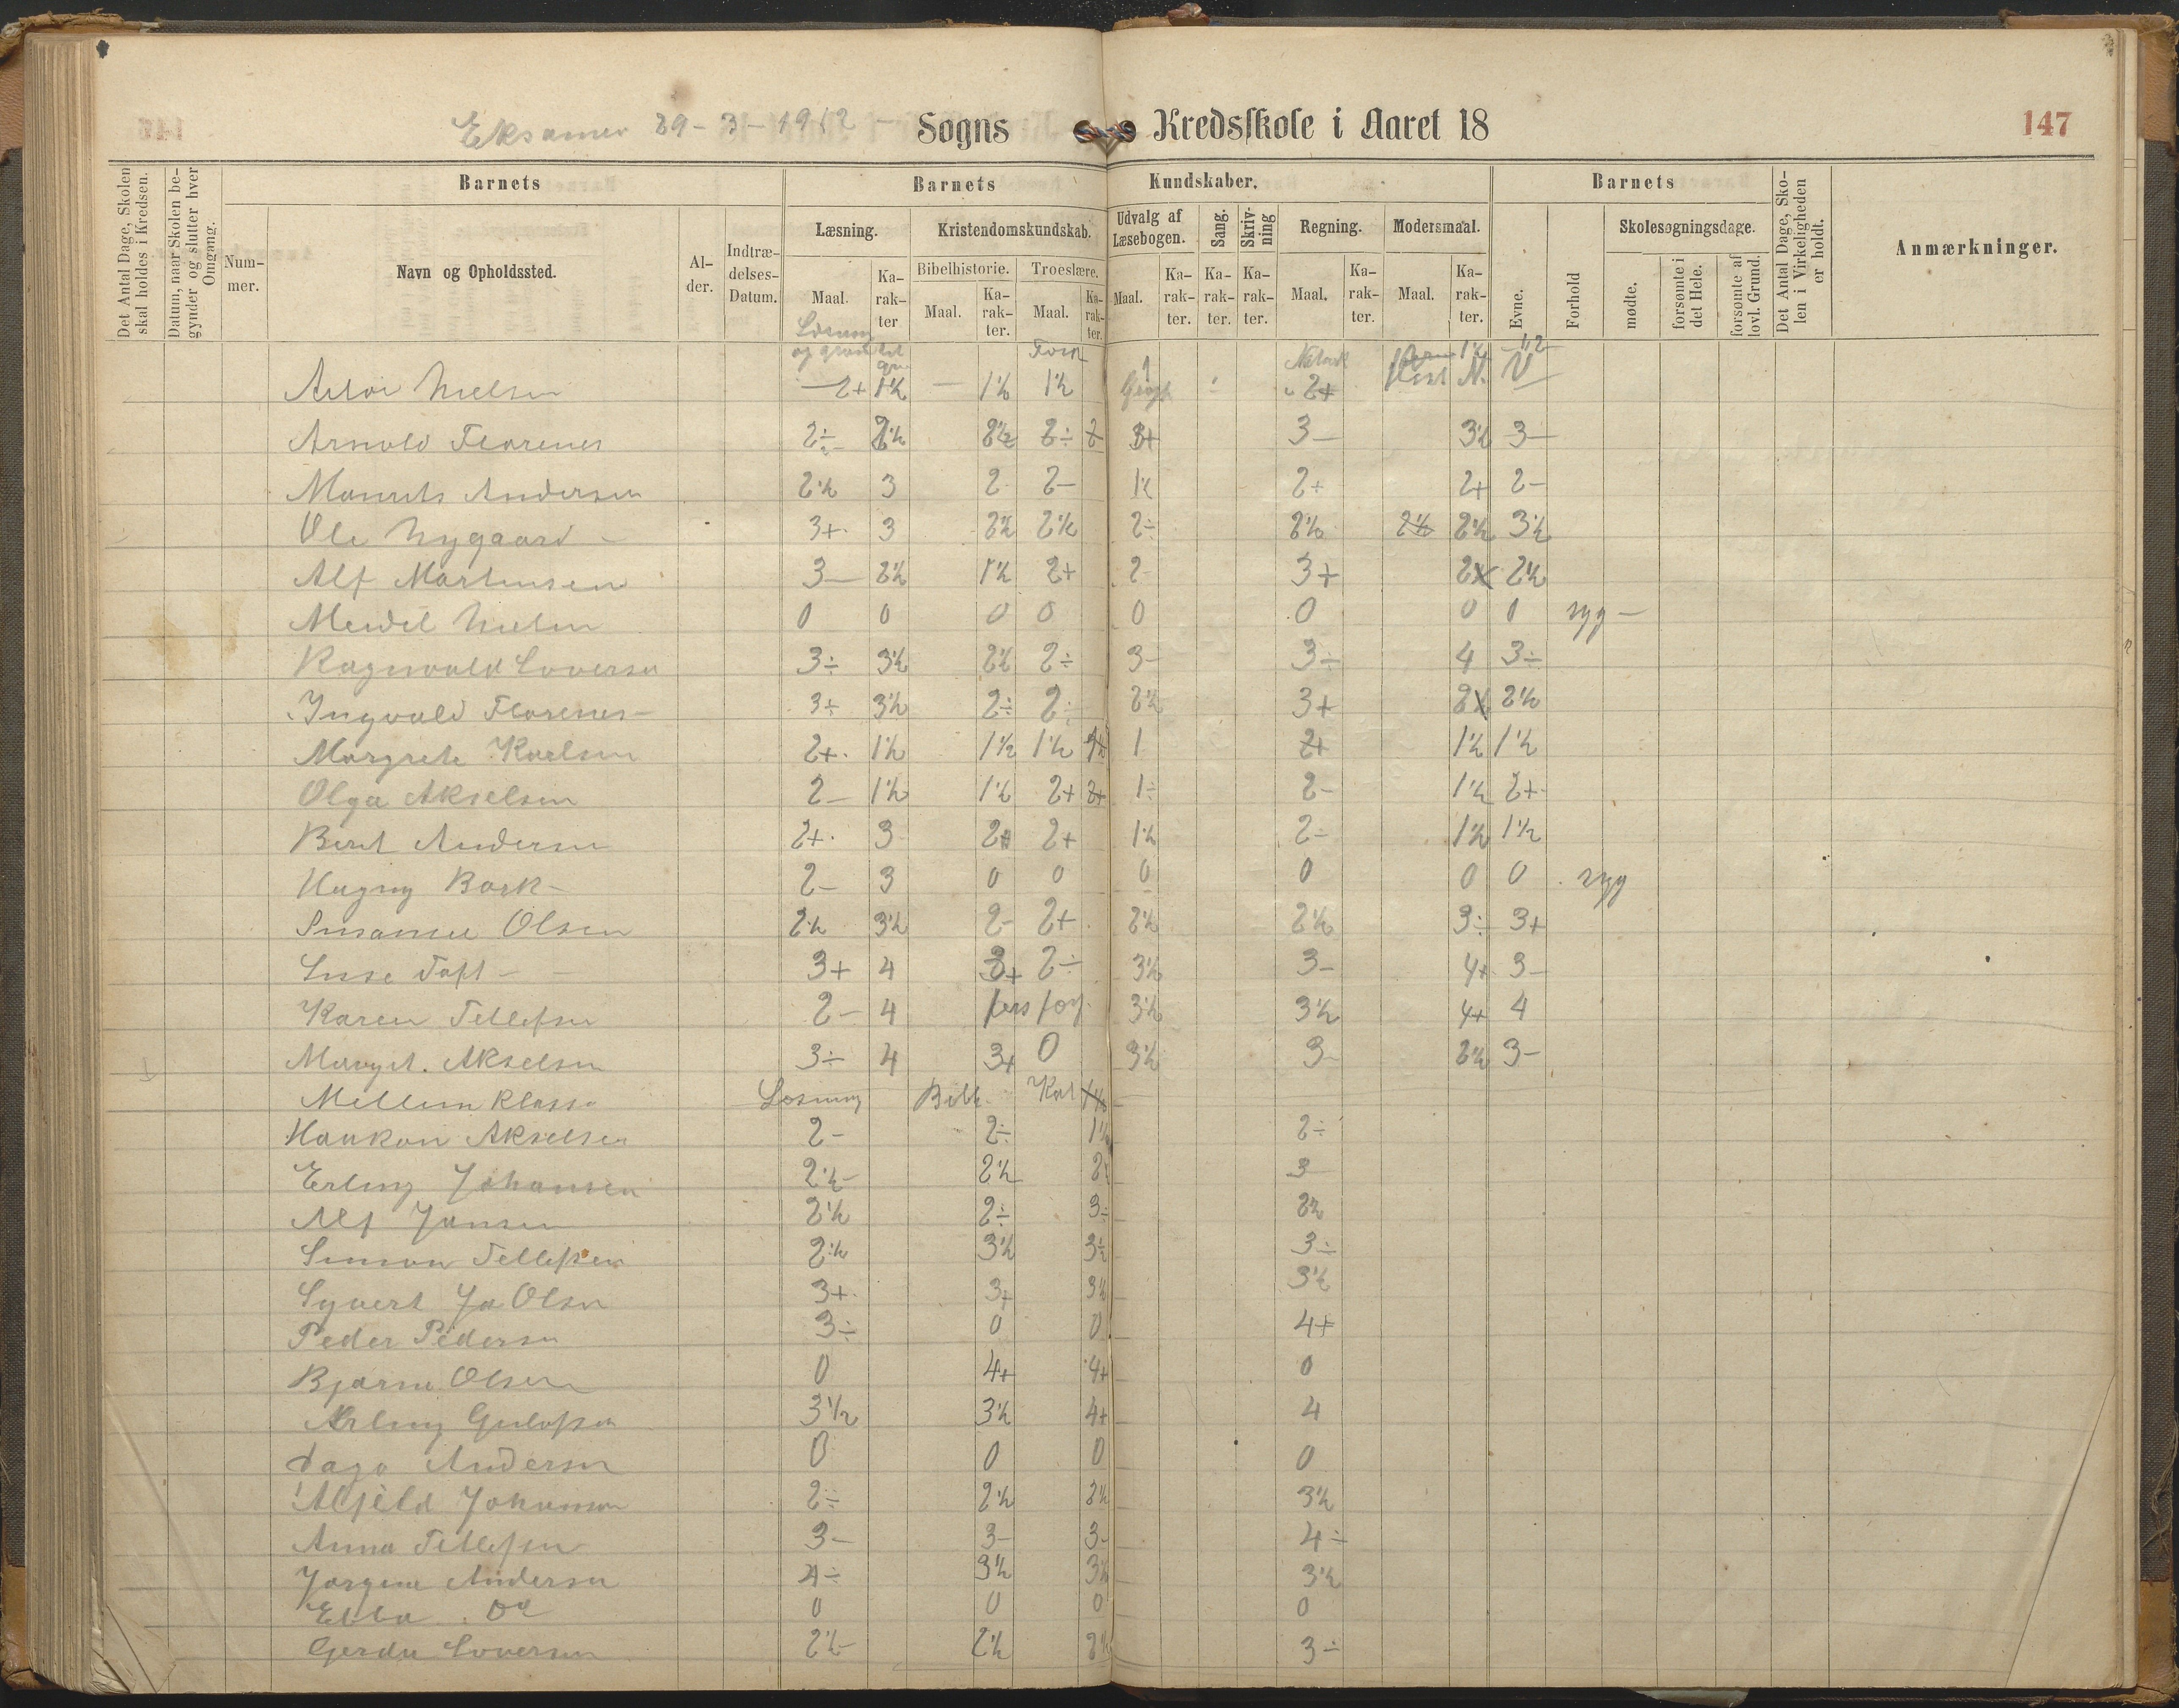 Eksamen 29-3-1912 - Sogns Kredsskole i Aaret 18 147
Det Antal Dage, Skolen skal holdes i Kredsen.
Datum, naar Skolen begynder og slutter hver Omgang.
Barnets
Nummer.
Navn og Opholdssted.
Alder.
Indtrædelses-Datum.
Barnets Kundskaber.
Læsning. Maal. Karakter
Kristendomskundskab.
Bibelhistorie. Maal. Karakter.
Troeslære. Maal. Karakter.
Udvalg af Læsebogen. Maal. Karakter.
Sang. Karakter.
Skrivning Karakter.
Regning. Maal. Karakter.
Modersmaal. Maal. Karakter.
Barnets
Evne.
Forhold
Skolesøgningsdage.
mødte.
forsømte i det Hele.
forsømte af lovl. Grund.
Det Antal Dage, Skolen i Virkeligheden er holdt.
Anmærkninger.
Nielsen 2+ 1½ - 1½ 1½ Geogr 1 2+
Arnold Florenes 2÷ 2½ 2½ 2÷ 2 3+ 3- 3½ 3-
Andersen 2½ 3 2 2- 1½ 2+ 2+ 2-
Ole Nygaard - 3+ 3 2½ 2½ 2÷ 2½ 2½ 2½ 3½
Alf Martinsen 3- 2½ 1½ 2+ 2- 3+ 2½
Nielsen 0 0 0 0 0 0 0 0 syg -
Ragnvald Soversen 3÷ 3½ 2½ 2÷ 3- 3÷ 4 3÷
Ingvald Florenes - 3+ 3½ 2÷ 2÷ 2½ 3+ 2½
Margrete Karlsen 2+ 1½ 1½ 1½ 1 2+ 1½ 1½
Olga Akselsen 2- 1½ 1½ 2+ 2+ 1÷ 2- 1½ 2+
Berit Andersen 2+ 3 2+ 2+ 1½ 2- 1½ 1½
Hagny Bark - 2- 3 0 0 0 0 0 0 syg
Susanne Olsen 2½ 3½ 2- 2+ 2½ 2½ 3÷ 3+
Toft - 3+ 4 3+ 2÷ 3½ 3- 4+ 3-
Karen Tellefsen 2- 4 3½ 3½ 4+ 4
Margit. Akselsen 3÷ 4 3+ 0 3½ 3- 2½ 3-
Mellem klasse Læsning Bibl. Kat
Haakon Akselsen 2- 2÷ 1½ 2÷
Erling Johansen 2½- 2½ 3
Alf Jansen 2½ 2÷ 3÷ 2½
Simon Tellefsen 2½ 3½ 3½ 3÷
Syvert Ja Olsen 3+ 3+ 3½ 3½
Peder Pedersen 3÷ 0 0 4+
Bjarne Olsen 0 4+ 4+ 0
Arling Gulofsen 3½ 3½ 4+ 4
Dago Andersen 0 0 0 0
Alfild Johansen 2÷ 2½ 2½ 3½
Anna Tellefsen 3- 3- 3- 4÷
Jørgine Andersen 4÷ 3½ 3½ 3½
Ebba 0 0 0 0
Gerda Soversen 2½- 2½ 2½ 3÷